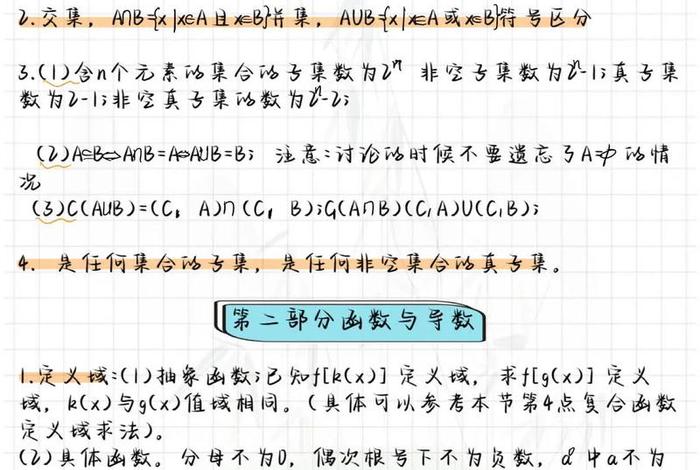 2.交集，A∩B={x|x∈A且x∈B}并集，A∪B={x|x∈A或x∈B}符号区分
3.(1)含n个元素的集合的子集数为2ⁿ 非空子集数为2ⁿ-1;真子集
数为2-1;非空真子集的数为2ⁿ-2;
(2)A⊆B⇔A∩B=A⇔A∪B=B; 注意:讨论的时候不要遗忘了A=φ的情
况
(3)C(A∪B)=(C, A)∩(C, B);C(A∩B)(C,A)∪(C,B);
4. 是任何集合的子集，是任何非空集合的真子集。
第二部分函数与导数
1.定义域:(1)抽象函数;已知f[k(x)]定义域，求f[g(x)]定义
域，k(x)与g(x)值域相同。(具体可以参考本节第4点复合函数
定义域求法)。
(2)具体函数。分母不为0，偶次根号下不为负数，中a不为